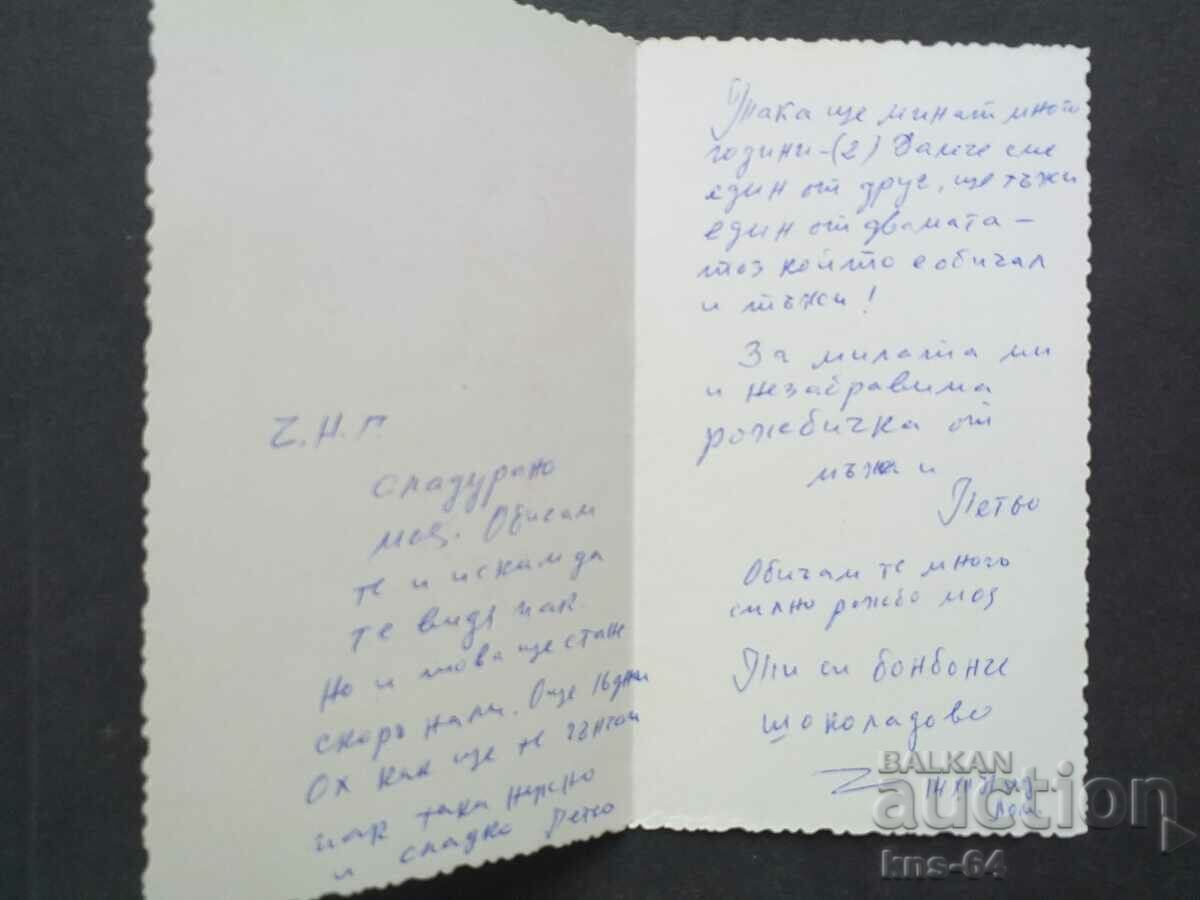 Ч.Н.Г.
сладурано
моя. Обичам
те и искам да
те видя пак.
Но и това ще стане
скоръ нали. Още 16 дни
Ох как ще те гънгам
пак така нежно
и сладко Петьо
Така ще минат много
години-(2) Далече сме
един от друг, ще тъжи
един от двамата –
тоз който е обичал
и тъжи!
За милата ми
и незабравима
рожбичка от
мъжа и
Петьо
Обичам те много
силно рожбо моя
Ти си бонбонче
шоколадово
14 XII
Лом.
BALKAN
auction
kns-64